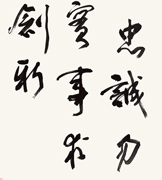 忠誠
實事求
創新